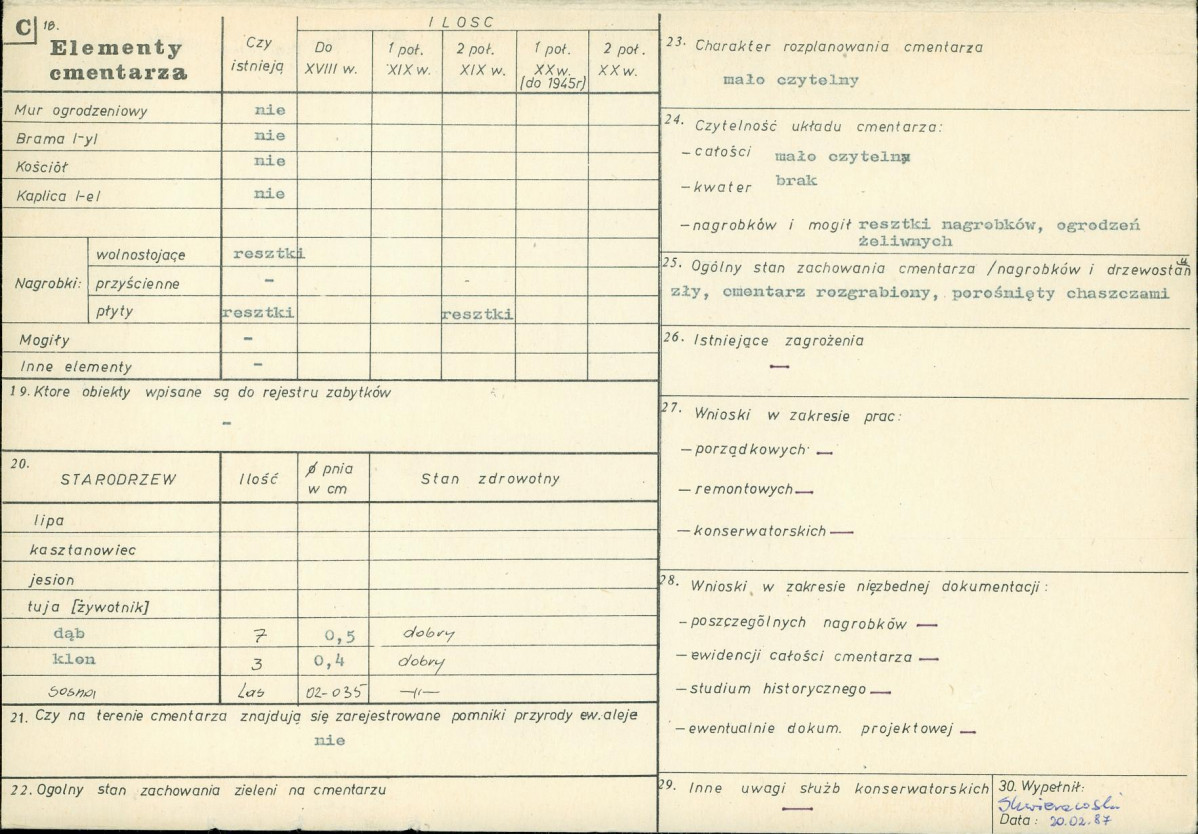 C 18.
Elementy cmentarza
Czy istnieją
ILOSC
Do XVIII w.
1 poł. XIX w.
2 poł. XIX w.
1 poł. XX w. (do 1945r)
2 poł. XX w.
Mur ogrodzeniowy nie
Brama l-yl nie
Kościół nie
Kaplica l-el nie
Nagrobki:
wolnostojące resztki
przyścienne - -
płyty resztki resztki
Mogiły -
Inne elementy -
19. Ktore obiekty wpisane są do rejestru zabytków
-
20. STARODRZEW Ilość ø pnia w cm Stan zdrowotny
lipa
kasztanowiec
jesion
tuja [żywotnik]
dąb 7 0,5 dobry
klon 3 0,4 dobry
sosna Las 02-035 —"—
21. Czy na terenie cmentarza znajdują się zarejestrowane pomniki przyrody ew. aleje
nie
22. Ogolny stan zachowania zieleni na cmentarzu
23. Charakter rozplanowania cmentarza
mało czytelny
24. Czytelność układu cmentarza:
– całości mało czytelny
– kwater brak
– nagrobków i mogił resztki nagrobków, ogrodzeń
żeliwnych
25. Ogólny stan zachowania cmentarza /nagrobków i drzewostanu
zły, cmentarz rozgrabiony, porośnięty chaszczami
26. Istniejące zagrożenia
—
27. Wnioski w zakresie prac:
– porządkowych —
– remontowych —
– konserwatorskich —
28. Wnioski w zakresie nięzbednej dokumentacji:
– poszczególnych nagrobków —
– ewidencji całości cmentarza —
– studium historycznego —
– ewentualnie dokum. projektowej —
29. Inne uwagi służb konserwatorskich
—
30. Wypełnił:
Data: 20.02.87